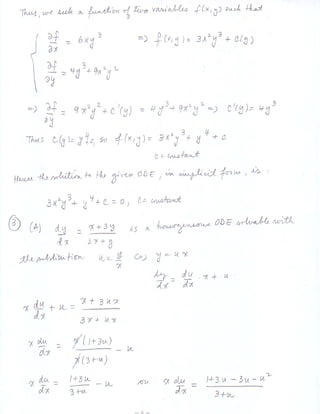 Thus, we seek a function of two variables f(x,y) such that
∂f/∂x = 6xy³ => f(x,y) = 3x²y³ + C(y)
∂f/∂y = 4y³ + 9x²y²
=> ∂f/∂y = 9x²y² + C'(y) = 4y³ + 9x²y² => C'(y) = 4y³
Thus C(y) = y⁴ + c, so f(x,y) = 3x²y³ + y⁴ + c
c = constant
Hence the solution to the given ODE, in implicit form, is:
3x²y³ + y⁴ + C = 0, C = constant
③ (A) dy/dx = (x+3y)/(3x+y) is a homogeneous ODE solvable with
the substitution u = y/x (=) y = ux
dy/dx = du/dx · x + u
x du/dx + u = (x + 3ux)/(3x + ux)
x du/dx = x(1+3u)/x(3+u) - u
x du/dx = (1+3u)/(3+u) - u or x du/dx = (1+3u-3u-u²)/(3+u)
-2-